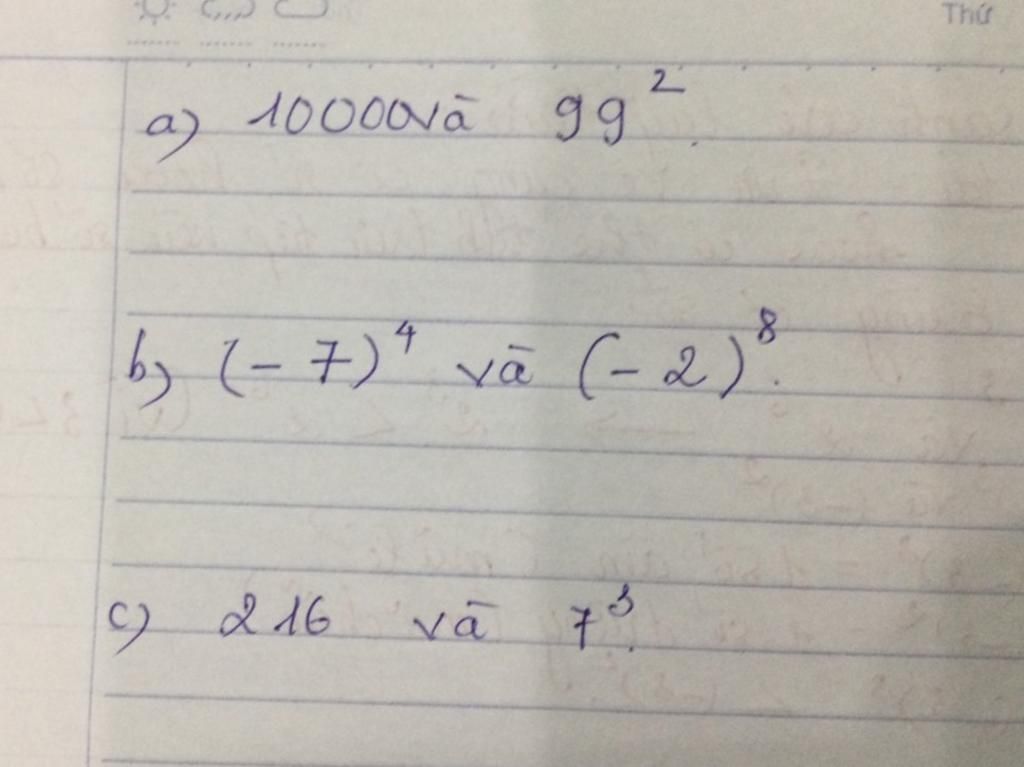 Thứ
a) 10000 và 99².
b) (-7)⁴ và (-2)⁸.
c) 216 và 7³.